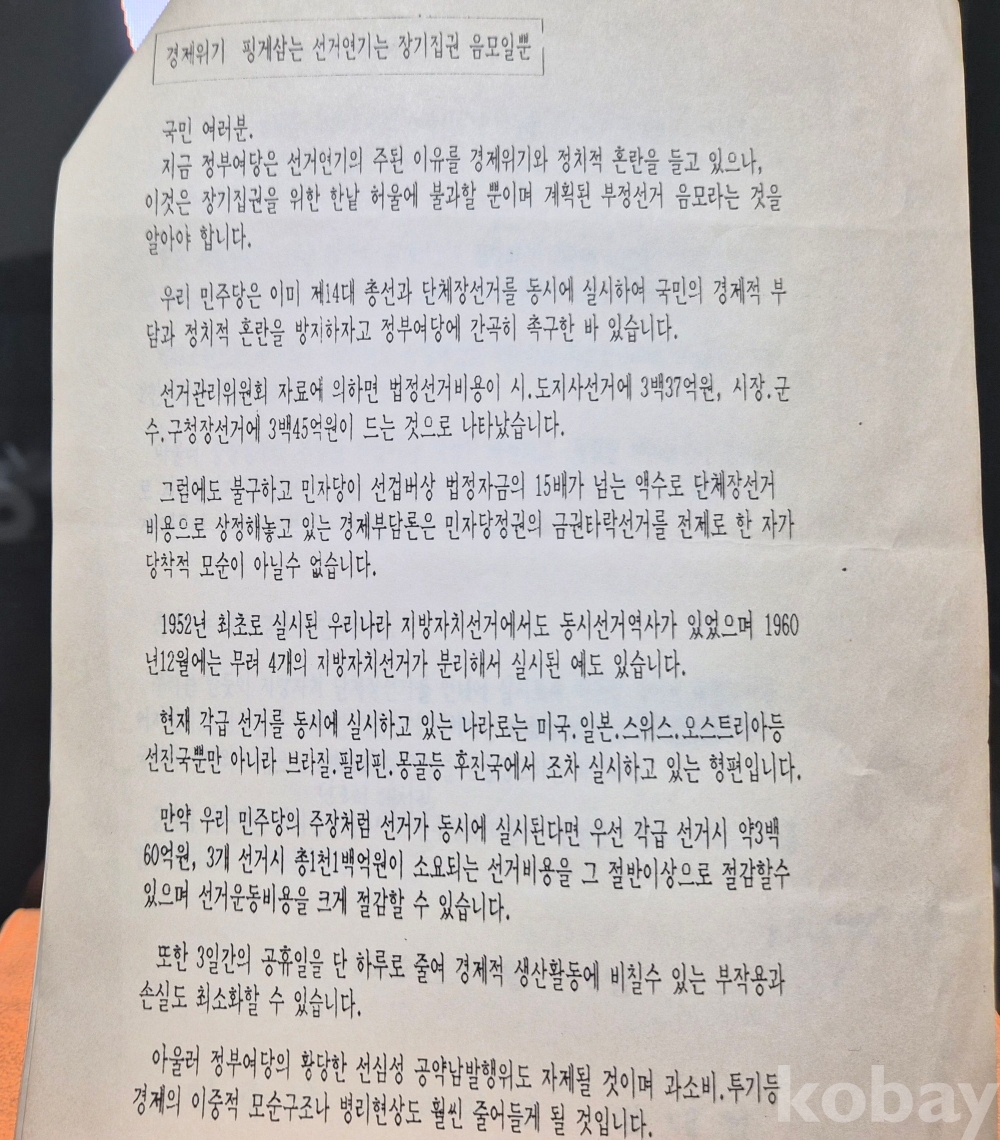 경제위기 핑게삼는 선거연기는 장기집권 음모일뿐
국민 여러분.
지금 정부여당은 선거연기의 주된 이유를 경제위기와 정치적 혼란을 들고 있으나,
이것은 장기집권을 위한 한낱 허울에 불과할 뿐이며 계획된 부정선거 음모라는 것을
알아야 합니다.
우리 민주당은 이미 제14대 총선과 단체장선거를 동시에 실시하여 국민의 경제적 부
담과 정치적 혼란을 방지하자고 정부여당에 간곡히 촉구한 바 있습니다.
선거관리위원회 자료에 의하면 법정선거비용이 시.도지사선거에 3백37억원, 시장.군
수.구청장선거에 3백45억원이 드는 것으로 나타났습니다.
그럼에도 불구하고 민자당이 선겁버상 법정자금의 15배가 넘는 액수로 단체장선거
비용으로 상정해놓고 있는 경제부담론은 민자당정권의 금권타락선거를 전제로 한 자가
당착적 모순이 아닐수 없습니다.
1952년 최초로 실시된 우리나라 지방자치선거에서도 동시선거역사가 있었으며 1960
년12월에는 무려 4개의 지방자치선거가 분리해서 실시된 예도 있습니다.
현재 각급 선거를 동시에 실시하고 있는 나라로는 미국.일본.스위스.오스트리아등
선진국뿐만 아니라 브라질.필리핀.몽골등 후진국에서 조차 실시하고 있는 형편입니다.
만약 우리 민주당의 주장처럼 선거가 동시에 실시된다면 우선 각급 선거시 약3백
60억원, 3개 선거시 총1천1백억원이 소요되는 선거비용을 그 절반이상으로 절감할수
있으며 선거운동비용을 크게 절감할 수 있습니다.
또한 3일간의 공휴일을 단 하루로 줄여 경제적 생산활동에 비칠수 있는 부작용과
손실도 최소화할 수 있습니다.
아울러 정부여당의 황당한 선심성 공약남발행위도 자제될 것이며 과소비.투기등
경제의 이중적 모순구조나 병리현상도 훨씬 줄어들게 될 것입니다.
kobay